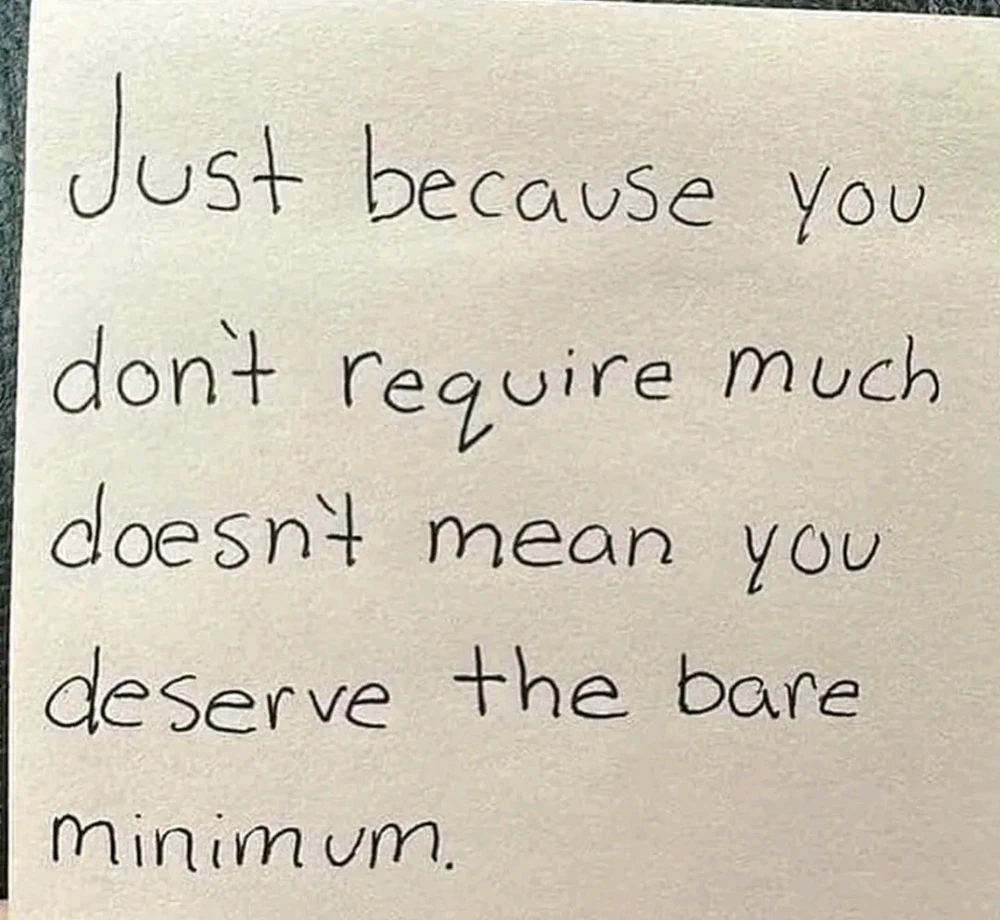 Just because you
don't require much
doesn't mean you
deserve the bare
minimum.